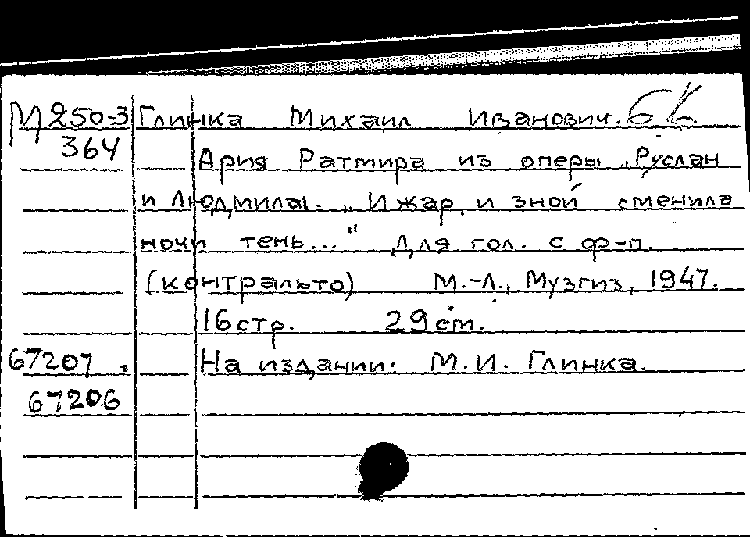 М250-3 Глинка Михаил Иванович.
364 Ария Ратмира из оперы „Руслан
и Людмила". „И жар, и зной сменила
ночи тень..." Для гол. с ф-п.
(контральто) М.-Л., Музгиз, 1947.
16 стр. 29 см.
67207. На издании: М.И. Глинка.
67206